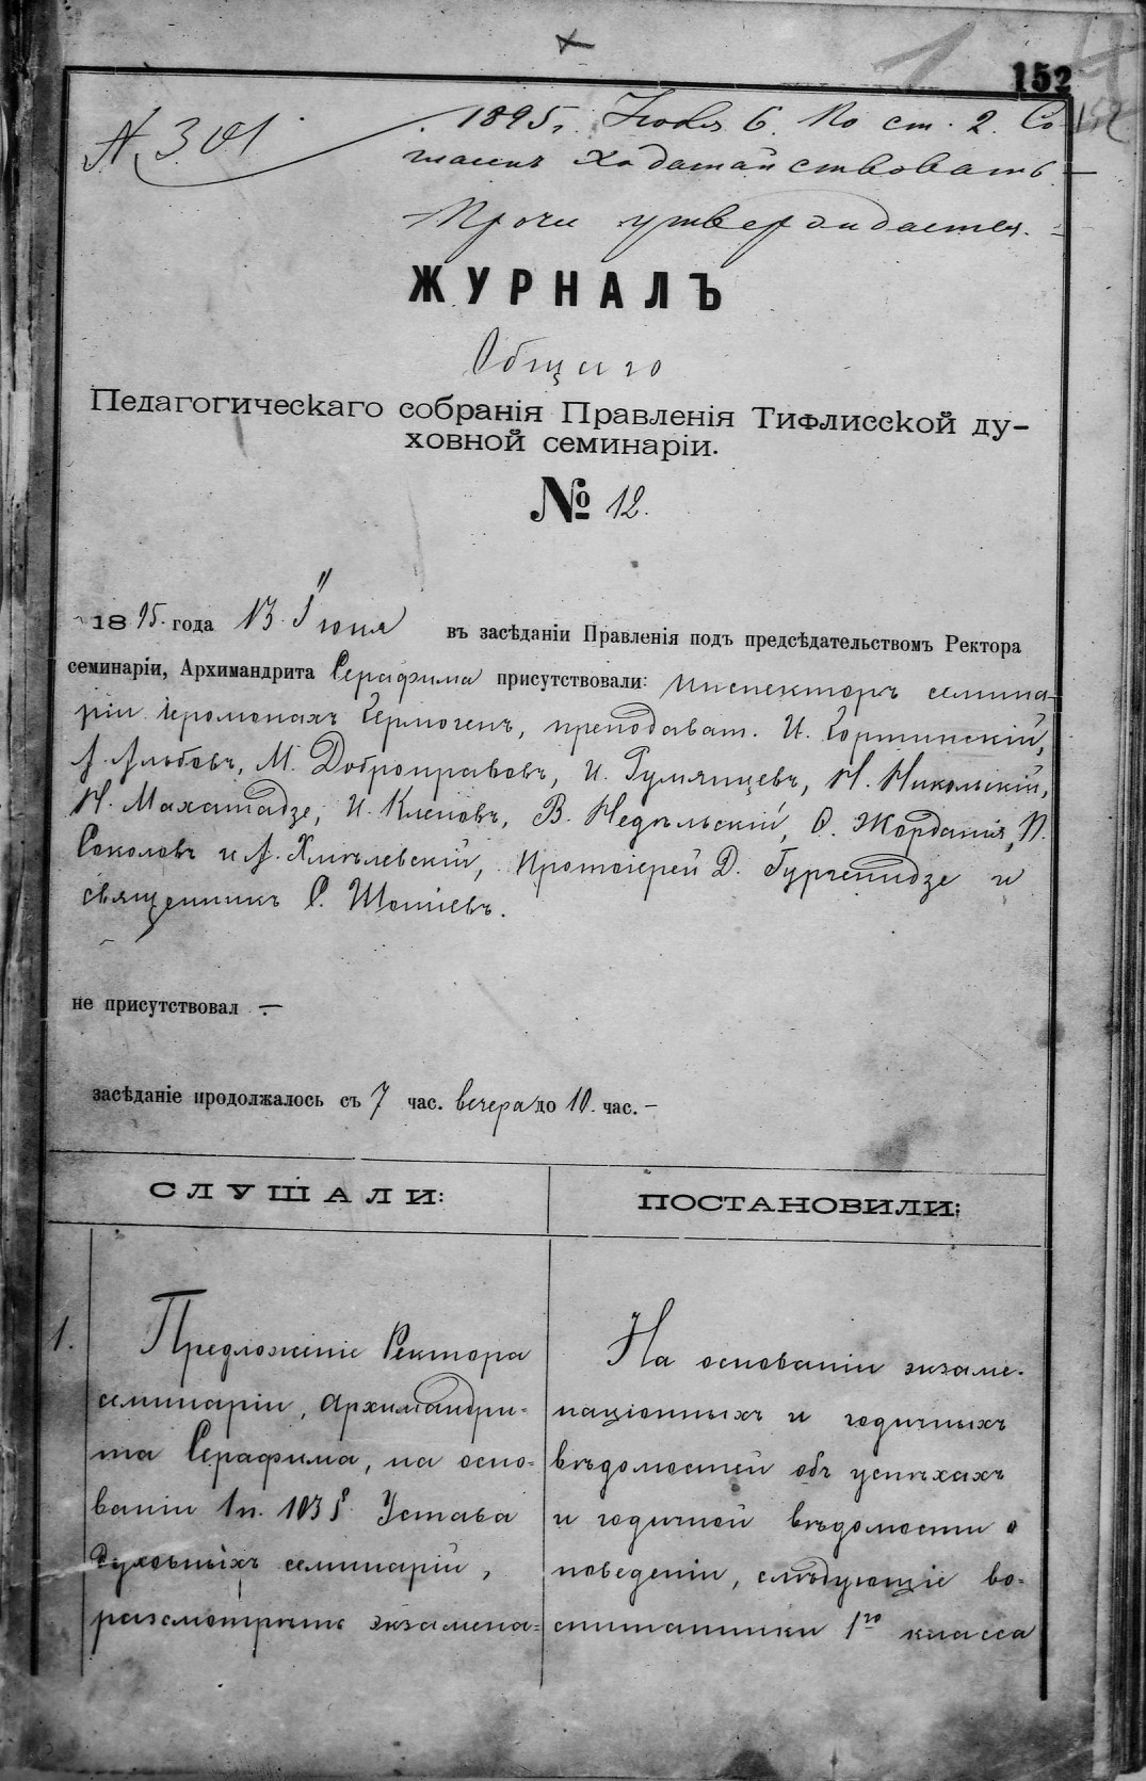 152
№ 301
1895 г. Іюля 6. По ст. 2. Со-
гласенъ ходатайствовать.—
Прочее утверждается.
ЖУРНАЛЪ
Общаго
Педагогическаго собранія Правленія Тифлисской ду-
ховной семинаріи.
№ 12.
1895. года 13. Іюня въ засѣданіи Правленія подъ предсѣдательствомъ Ректора
семинаріи, Архимандрита Серафима присутствовали: инспекторъ семина-
ріи іеромонахъ Гермогенъ, преподават. И.
А. Альбовъ, М. Добронравовъ, И. Румянцевъ, Н. Никольскій,
Н. Махатадзе, И. Кленовъ, В. Недѣльскій, Ѳ. Жорданія, П.
Соколовъ и А. Хмѣлевскій, Протоіерей Д. Гургенидзе и
священникъ С. Шошіевъ.
не присутствовал —
засѣданіе продолжалось съ 7 час. вечера до 10. час. —
СЛУШАЛИ:
1. Предложеніе Ректора
семинаріи, Архимандри-
та Серафима, на осно-
ваніи 1 п. 103 § Устава
духовныхъ семинарій,
разсмотрѣть экзамена-
ПОСТАНОВИЛИ:
На основаніи экзаме-
націонныхъ и годичныхъ
вѣдомостей объ успѣхахъ
и годичной вѣдомости о
поведеніи, слѣдующіе во-
спитанники 1го класса